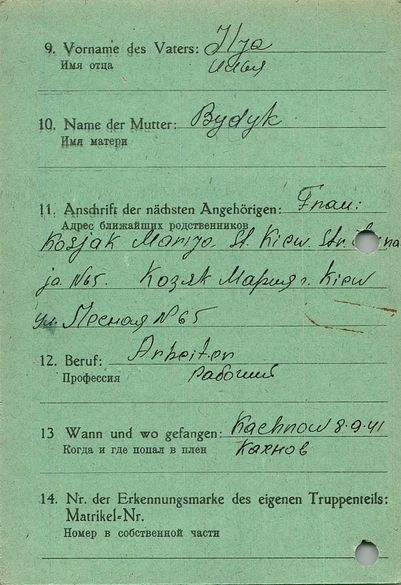 9. Vorname des Vaters: Ilja
Имя отца Илья
10. Name der Mutter: Bydyk
Имя матери
11. Anschrift der nächsten Angehörigen: Frau:
Адрес ближайших родственников
Kosjak Marija. St. Kiew. Str.
ja. №65. Козяк Мария г. Kiew
ул. Лесная №65
12. Beruf: Arbeiter
Профессия Рабочий
13 Wann und wo gefangen: Kachnow 8.9.41
Когда и где попал в плен Кахнов
14. Nr. der Erkennungsmarke des eigenen Truppenteils:
Matrikel-Nr.
Номер в собственной части